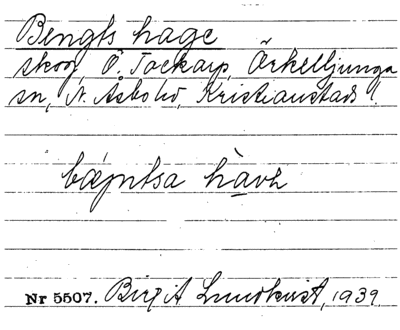 Bengts hage
skog, Ö. Tockarp, Örkelljunga
sn, N. Åsbo hd, Kristianstads l.
hàvɛ
Nr 5507. Birgit Lundkvist, 1939